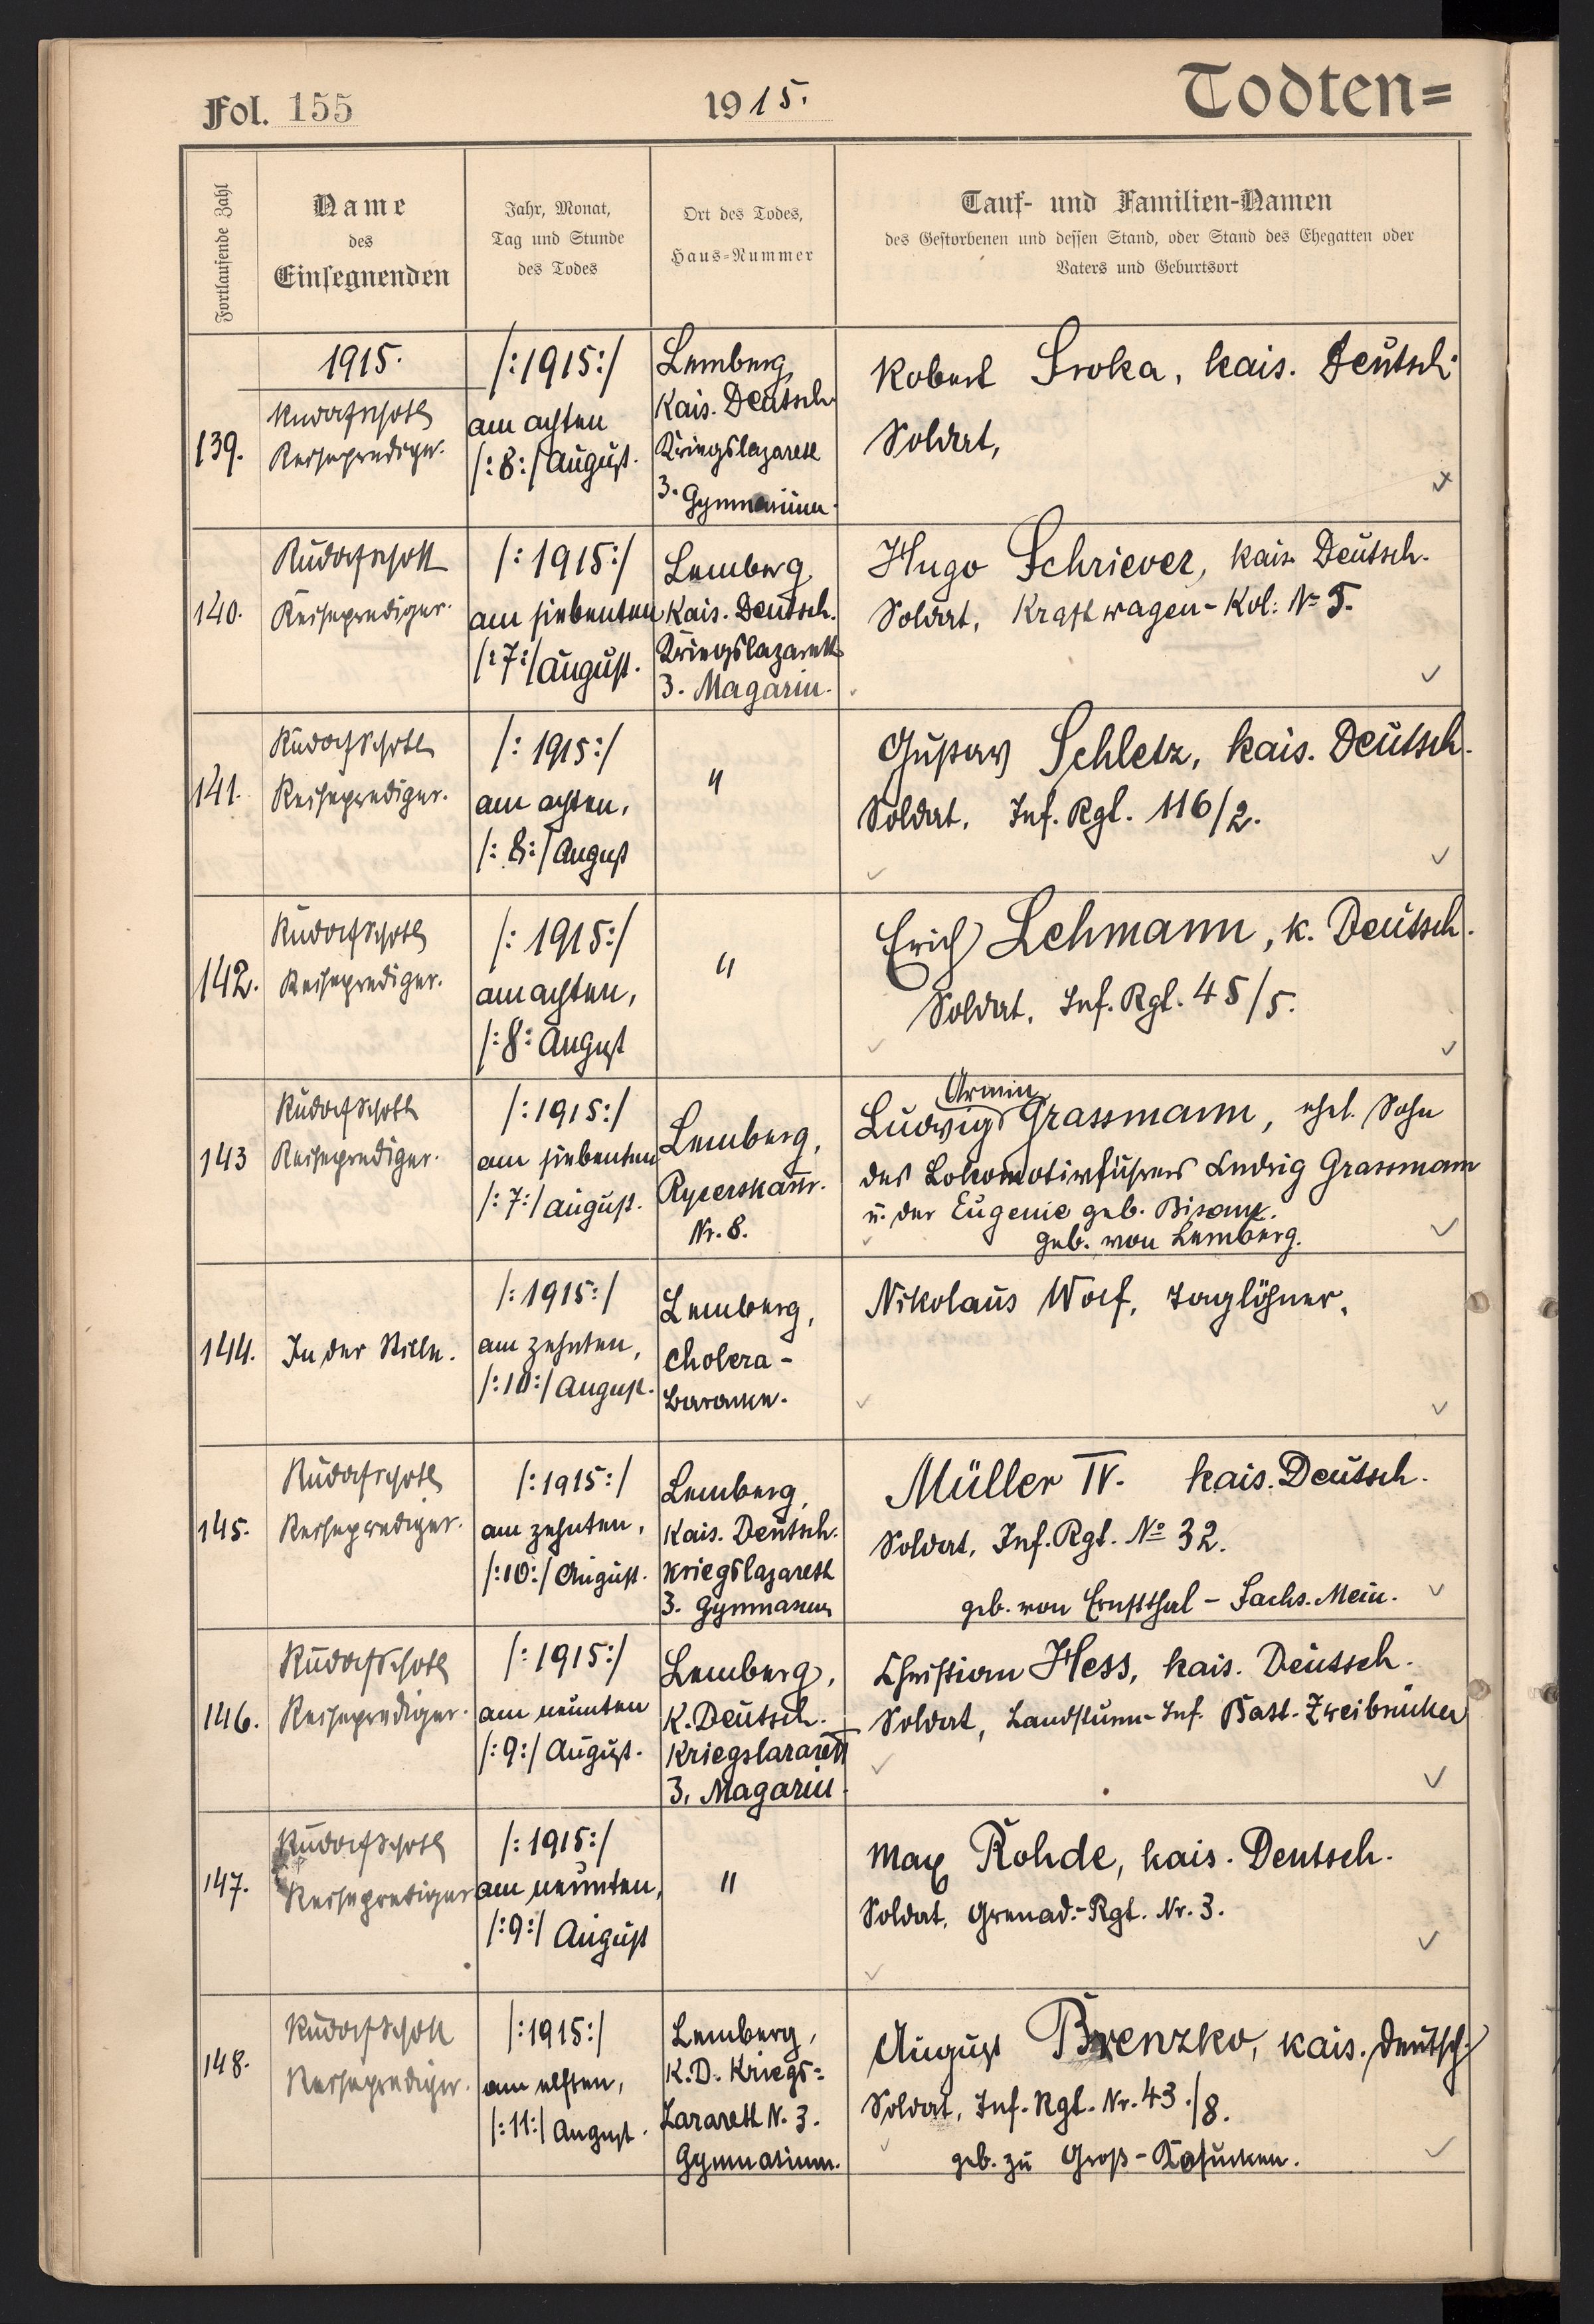 Fol. 155
1915.
Todten=
Fortlaufende Zahl
Name
des
Einsegnenden
Jahr, Monat,
Tag und Stunde
des Todes
Ort des Todes,
Haus-Nummer
Tauf- und Familien-Namen
des Gestorbenen und dessen Stand, oder Stand des Ehegatten oder
Vaters und Geburtsort
139.
1915.
Reiseprediger.
/:1915:/
am achten
/:8:/ August.
Lemberg,
Kais. Deutsch.
Kriegslazarett
3. Gymnasium.
Robert Sroka, kais. Deutsch.
Soldat,
140.
Rudolf Schott
Reiseprediger.
/:1915:/
am siebenten
/:7:/ August.
Lemberg
Kais. Deutsch.
Kriegslazarett
3. Magazin.
Hugo Schriever, kais. Deutsch.
Soldat, Kraftwagen-Kol: № 5.
141.
Rudolf Schott
Reiseprediger.
/:1915:/
am achten,
/:8:/ August
"
Gustav Schletz, kais. Deutsch.
Soldat. Inf. Rgt. 116/2.
142.
Rudolf Schott
Reiseprediger.
/:1915:/
am achten,
/:8: August
"
Erich Lehmann, k. Deutsch.
Soldat. Inf. Rgt. 45/5.
143
Rudolf Schott
Reiseprediger.
/:1915:/
am siebenten
/:7:/ August.
Lemberg,
Rycerskastr.
Nr. 8.
Armin
Ludwig Grassmann, ehel. Sohn
des Lokomotivführers Ludwig Grassmann
u. der Eugenie geb. Bisanz.
geb. von Lemberg.
144.
In der Stille.
/:1915:/
am zehnten,
/:10:/ August.
Lemberg,
Cholera-
Baracke.
Nikolaus Wolf, Taglöhner.
145.
Rudolf Schott
Reiseprediger.
/:1915:/
am zehnten,
/:10:/ August.
Lemberg,
Kais. Deutsch.
Kriegslazarett
3. Gymnasium
Müller IV. kais. Deutsch.
Soldat, Inf. Rgt. № 32.
geb. von Ernstthal - Sachs. Mein.
146.
Rudolf Schott
Reiseprediger.
/:1915:/
am neunten
/:9:/ August.
Lemberg,
K. Deutsch.
Kriegslazarett
3. Magazin.
Christian Hess, kais. Deutsch.
Soldat, Landsturm-Inf. Batt. Zweibrücken
147.
Rudolf Schott
Reiseprediger
/:1915:/
am neunten,
/:9:/ August
"
Max Rohde, kais. Deutsch.
Soldat, Grenad.-Rgt. Nr. 3.
148.
Rudolf Schott
Reiseprediger.
/:1915:/
am elften,
/:11:/ August.
Lemberg,
K. D. Kriegs-
Lazarett N. 3.
Gymnasium.
August Brenzko, kais. Deutsch.
Soldat, Inf. Rgt. Nr. 43./8.
geb. zu Groß-